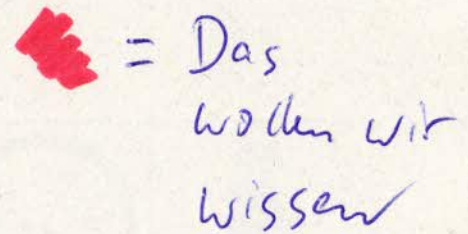 = Das
wollen wir
wissen